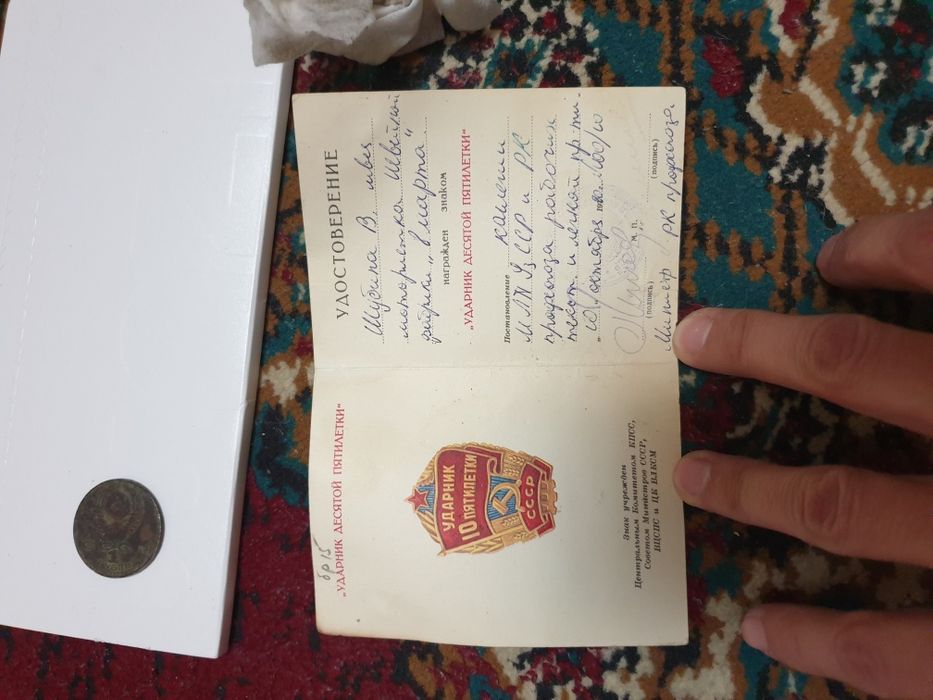 бр 15
„УДАРНИК ДЕСЯТОЙ ПЯТИЛЕТКИ“
УДАРНИК
10 ПЯТИЛЕТКИ
СССР
Знак учрежден
Центральным Комитетом КПСС,
Советом Министров СССР,
ВЦСПС и ЦК ВЛКСМ
УДОСТОВЕРЕНИЕ
Шубина В, швея
мотористка Швейной
фабрики „8 марта“
награжден знаком
„УДАРНИК ДЕСЯТОЙ ПЯТИЛЕТКИ“
Постановление коллегии
МЛП УзССР и РК
профсоюза рабочих
текст. и легкой пр-ти
октября 19
м. п.
(подпись) (подпись)
Министр РК профсоюза.